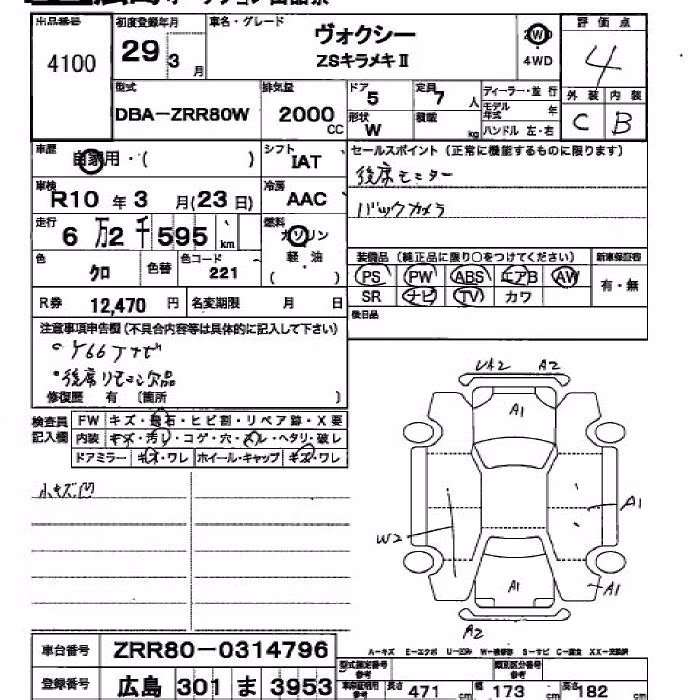 出品番号
4100
初度登録年月
29 3 月
車名・グレード
ヴォクシー
ZSキラメキⅡ
2W
4WD
評価点
4
外装 内装
C B
型式
DBA-ZRR80W
排気量
2000 CC
ドア 5
定員 7 人
形状 W
積載 kg
ディーラー・並行
モデル年式 年
ハンドル 左・右
車歴
自家用・( )
シフト
IAT
セールスポイント (正常に機能するものに限ります)
後席モニター
バックカメラ
車検
R10 年 3 月(23日)
冷房
AAC
走行
6万2千595 km
燃料
ガソリン
軽・油
( )
色
クロ
色替
色コード
221
装備品 (純正品に限り○をつけてください)
新車保証書
PS PW ABS エアB AW
有・無
SR ナビ TV カワ
後日品
R券 12,470 円
名変期限 月 日
注意事項申告欄 (不具合内容等は具体的に記入して下さい)
後席リモコン欠品
修復歴 有 〔箇所 〕
検査員
記入欄
FW キズ・飛石・ヒビ割・リペア跡・X要
内装 キズ・汚レ・コゲ・穴・スレ・ヘタリ・破レ
ドアミラー キズ・ワレ ホイール・キャップ キズ・ワレ
小キズ凹
UA2 A2
A1
A1
W2
A1
A1
A2
A-キズ E-エクボ U-凹み W-補修跡 S-サビ C-腐食 XX-交換済
車台番号
ZRR80-0314796
登録番号
広島 301 ま 3953
型式指定番号
参考
類別区分番号
参考
車庫証明用
参考
長さ 471 cm
幅 173 cm
高さ 182 cm